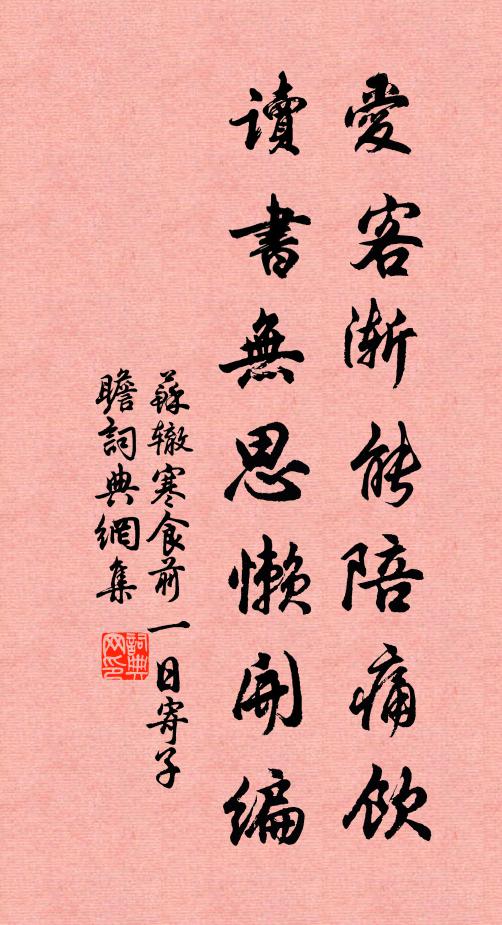 愛客漸能陪痛飲
讀書無思懶開編
蘇轍寒食前一日寄子
瞻詞典網集
詞典网印